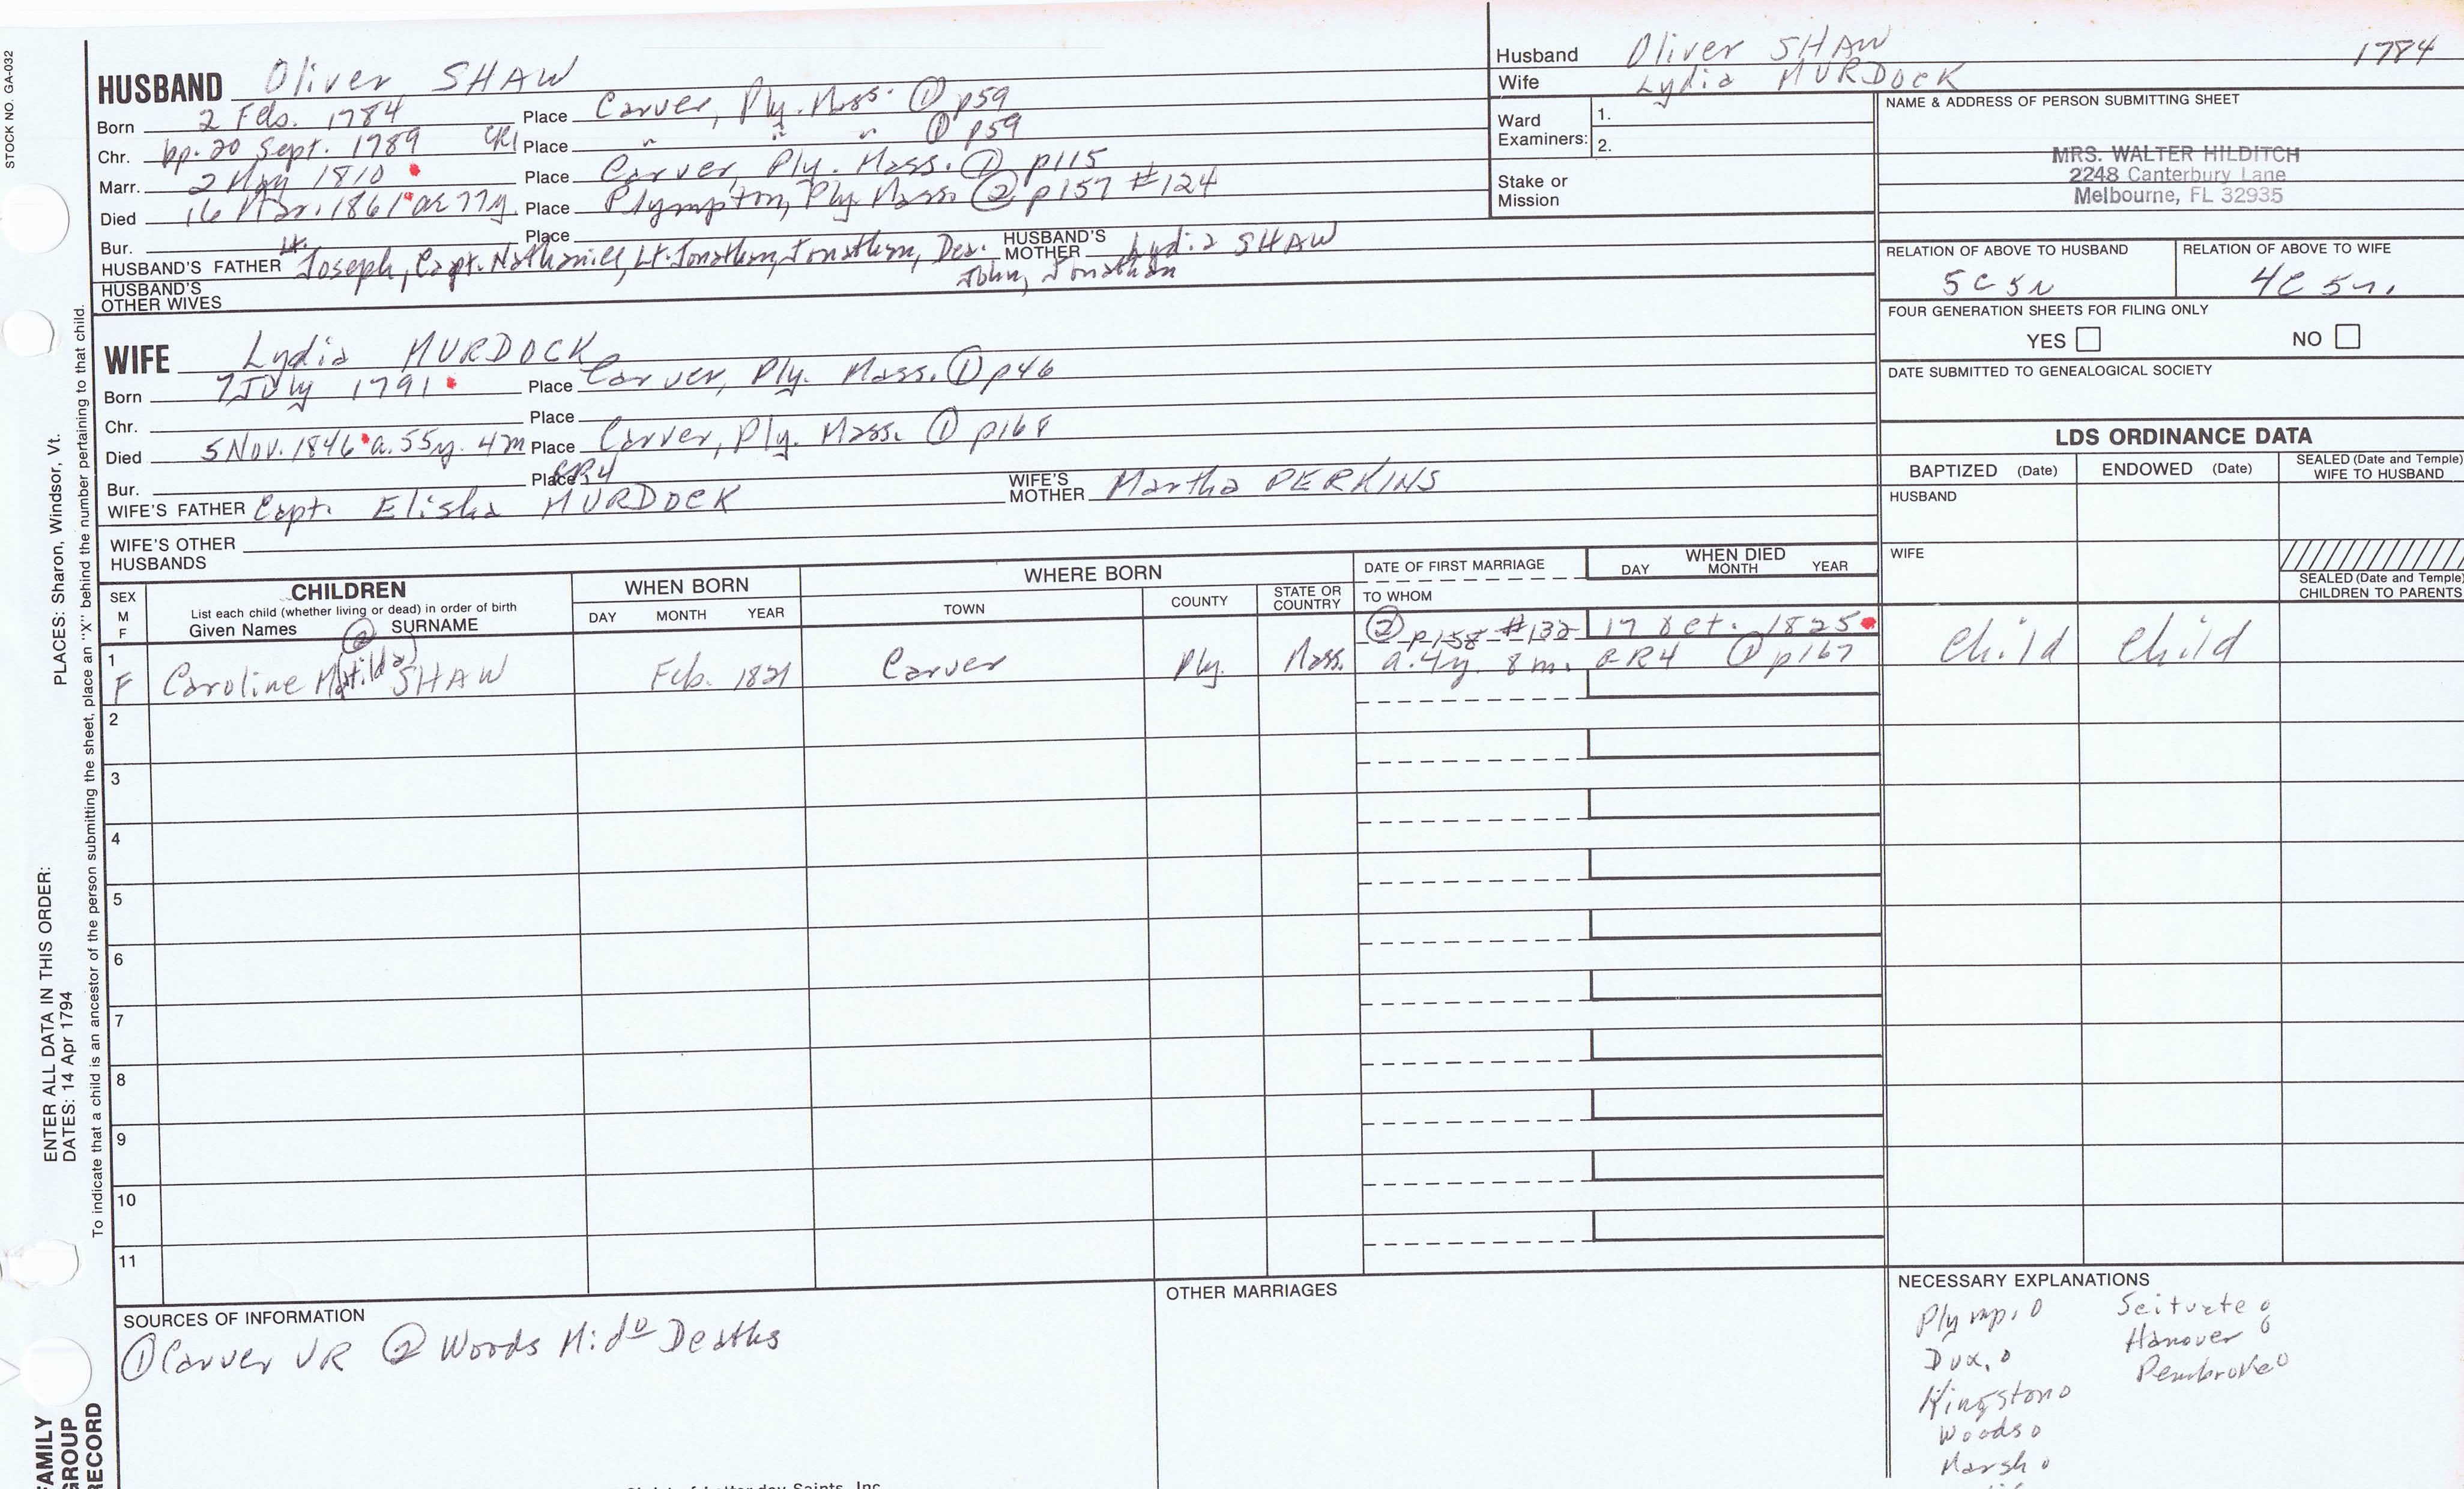 STOCK NO. GA-032
HUSBAND Oliver SHAW
Born 2 Feb. 1784 Place Carver, Ply. Mass. ① p59
Chr. bp. 20 Sept. 1789 CR1 Place " " " ① p59
Marr. 2 May 1810 Place Carver, Ply. Mass. ① p115
Died 16 Mar. 1861 ae 77y. Place Plympton, Ply. Mass. ② p157 #124
Bur. Place
HUSBAND'S FATHER Lt. Joseph, Capt. Nathaniel, Lt. Jonathan, Jonathan, Dea. John, Jonathan
HUSBAND'S MOTHER Lydia SHAW
HUSBAND'S OTHER WIVES
Husband Oliver SHAW 1784
Wife Lydia MURDOCK
Ward Examiners: 1.
2.
Stake or Mission
NAME & ADDRESS OF PERSON SUBMITTING SHEET
MRS. WALTER HILDITCH
2248 Canterbury Lane
Melbourne, FL 32935
RELATION OF ABOVE TO HUSBAND RELATION OF ABOVE TO WIFE
5C 5r 4C 5r.
FOUR GENERATION SHEETS FOR FILING ONLY
YES NO
DATE SUBMITTED TO GENEALOGICAL SOCIETY
WIFE Lydia MURDOCK
Born 7 July 1791 Place Carver, Ply. Mass. ① p46
Chr. Place
Died 5 Nov. 1846 a. 55y. 4m Place Carver, Ply. Mass. ① p168
Bur. Place GR4
WIFE'S FATHER Capt. Elisha MURDOCK WIFE'S MOTHER Martha PERKINS
WIFE'S OTHER HUSBANDS
LDS ORDINANCE DATA
BAPTIZED (Date) ENDOWED (Date) SEALED (Date and Temple) WIFE TO HUSBAND
HUSBAND
WIFE
SEALED (Date and Temple) CHILDREN TO PARENTS
SEX M F
CHILDREN
List each child (whether living or dead) in order of birth
Given Names SURNAME
WHEN BORN
DAY MONTH YEAR
WHERE BORN
TOWN COUNTY STATE OR COUNTRY
DATE OF FIRST MARRIAGE
TO WHOM
WHEN DIED
DAY MONTH YEAR
② p158 #132 17 Oct. 1825
1 F Caroline Matilda ② SHAW Feb. 1821 Carver Ply. Mass. a. 4y. 8m. GR4 ① p167 Child Child
2
3
4
5
6
7
8
9
10
11
SOURCES OF INFORMATION
① Carver VR ② Woods Mido Deaths
OTHER MARRIAGES
NECESSARY EXPLANATIONS
Plymp. 0 Scituate 0
Dux. 0 Hanover 0
Kingston 0 Pembroke 0
Woods 0
Marsh 0
ENTER ALL DATA IN THIS ORDER:
DATES: 14 Apr 1794
PLACES: Sharon, Windsor, Vt.
To indicate that a child is an ancestor of the person submitting the sheet, place an "X" behind the number pertaining to that child.
FAMILY
GROUP
RECORD